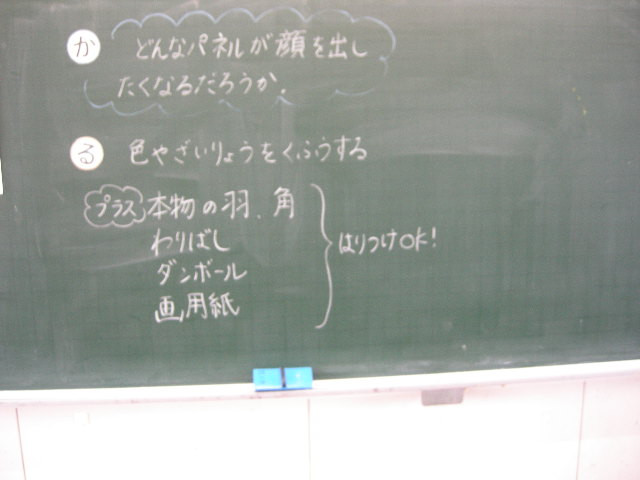 か どんなパネルが顔を出し
たくなるだろうか。
る 色やざいりょうをくふうする
プラス 本物の羽、角
わりばし
ダンボール
画用紙
はりつけOK!